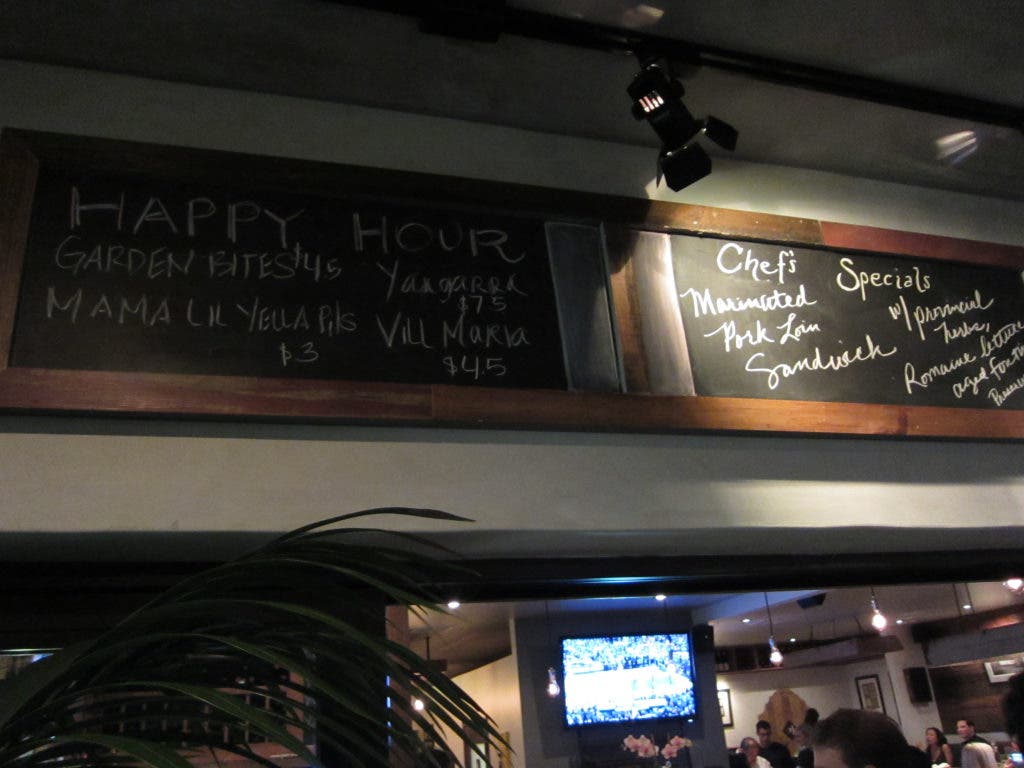 HAPPY HOUR
GARDEN BITES $45
MAMA LIL YELLA PILS
$3
Yangarra
$75
VILL MARIA
$45
Chef's Specials
Marinated
Pork Loin
Sandwich
w/ provincial
herbs,
Romaine lettuce
aged